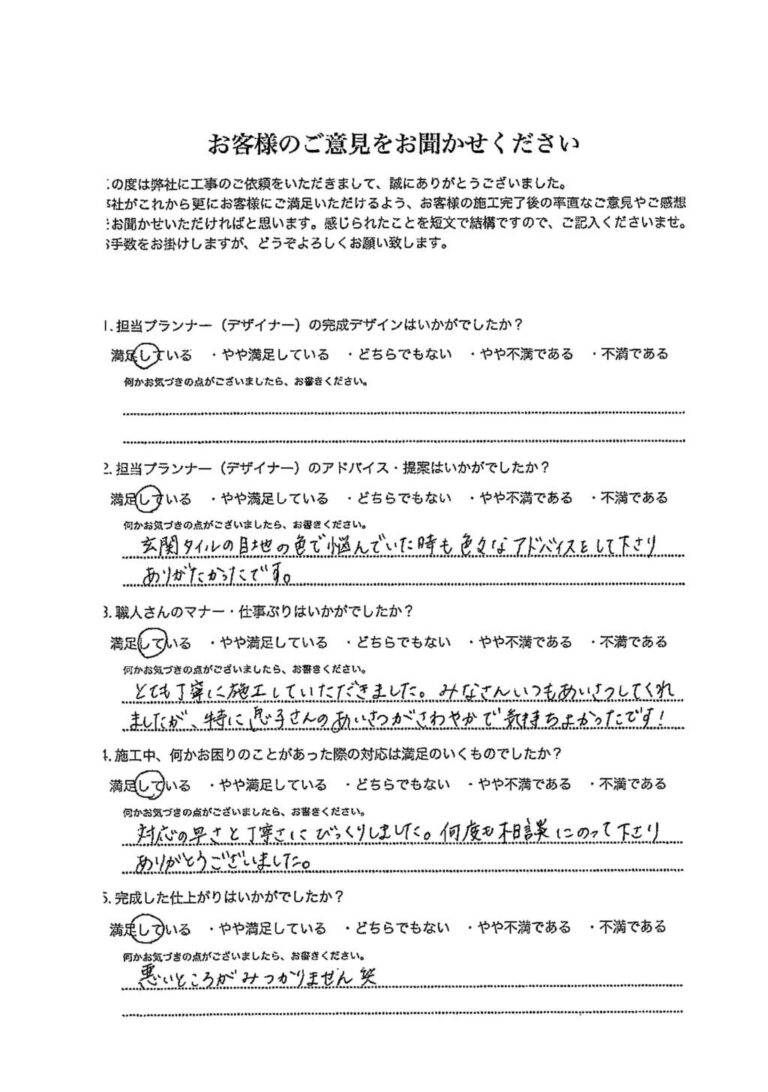 お客様のご意見をお聞かせください
の度は弊社に工事のご依頼をいただきまして、誠にありがとうございました。
社がこれから更にお客様にご満足いただけるよう、お客様の施工完了後の率直なご意見やご感想
お聞かせいただければと思います。感じられたことを短文で結構ですので、ご記入くださいませ。
手数をお掛けしますが、どうぞよろしくお願い致します。
1. 担当プランナー（デザイナー）の完成デザインはいかがでしたか？
満足している ・やや満足している ・どちらでもない ・やや不満である ・不満である
何かお気づきの点がございましたら、お書きください。
2. 担当プランナー（デザイナー）のアドバイス・提案はいかがでしたか？
満足している ・やや満足している ・どちらでもない ・やや不満である ・不満である
何かお気づきの点がございましたら、お書きください。
玄関タイルの目地の色で悩んでいた時も色々なアドバイスをして下さり
ありがたかったです。
3. 職人さんのマナー・仕事ぶりはいかがでしたか？
満足している ・やや満足している ・どちらでもない ・やや不満である ・不満である
何かお気づきの点がございましたら、お書きください。
とても丁寧に施工していただきました。みなさんいつもあいさつしてくれ
ましたが、特に息子さんのあいさつがさわやかで気持ちよかったです！
4. 施工中、何かお困りのことがあった際の対応は満足のいくものでしたか？
満足している ・やや満足している ・どちらでもない ・やや不満である ・不満である
何かお気づきの点がございましたら、お書きください。
対応の早さと丁寧さにびっくりしました。何度も相談にのって下さり
ありがとうございました。
5. 完成した仕上がりはいかがでしたか？
満足している ・やや満足している ・どちらでもない ・やや不満である ・不満である
何かお気づきの点がございましたら、お書きください。
悪いところがみつかりません笑